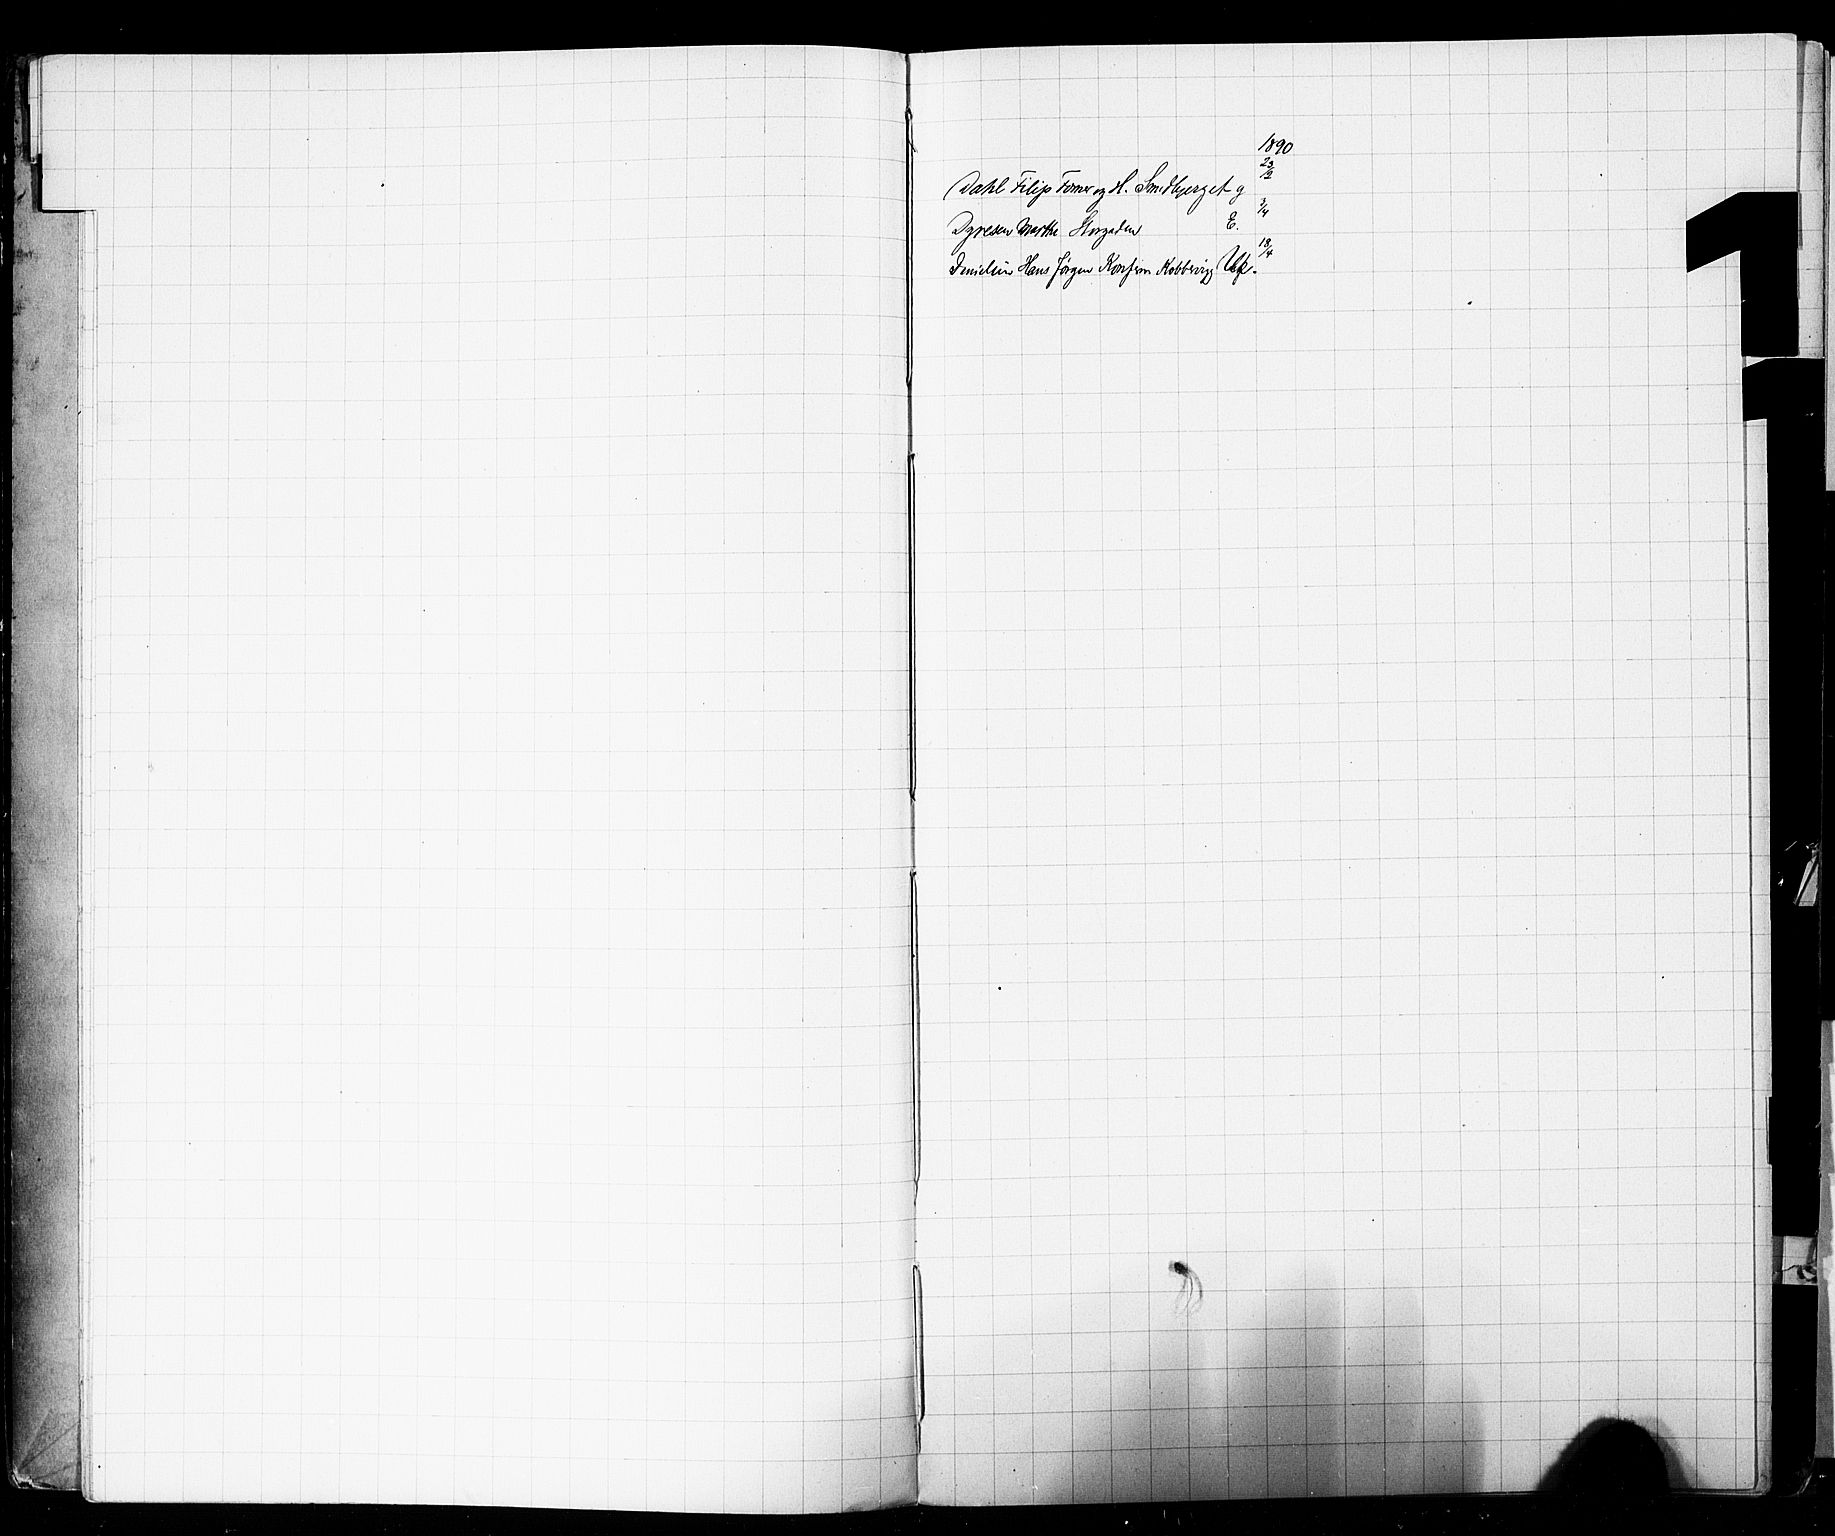 1890
Dahl Filip Farver og H. Smedbjerget g 23/2
Dyresen Marthe Storgaden E. 3/4
Danielsen Hans Jørgen Konfirm Kobbervig 18/4